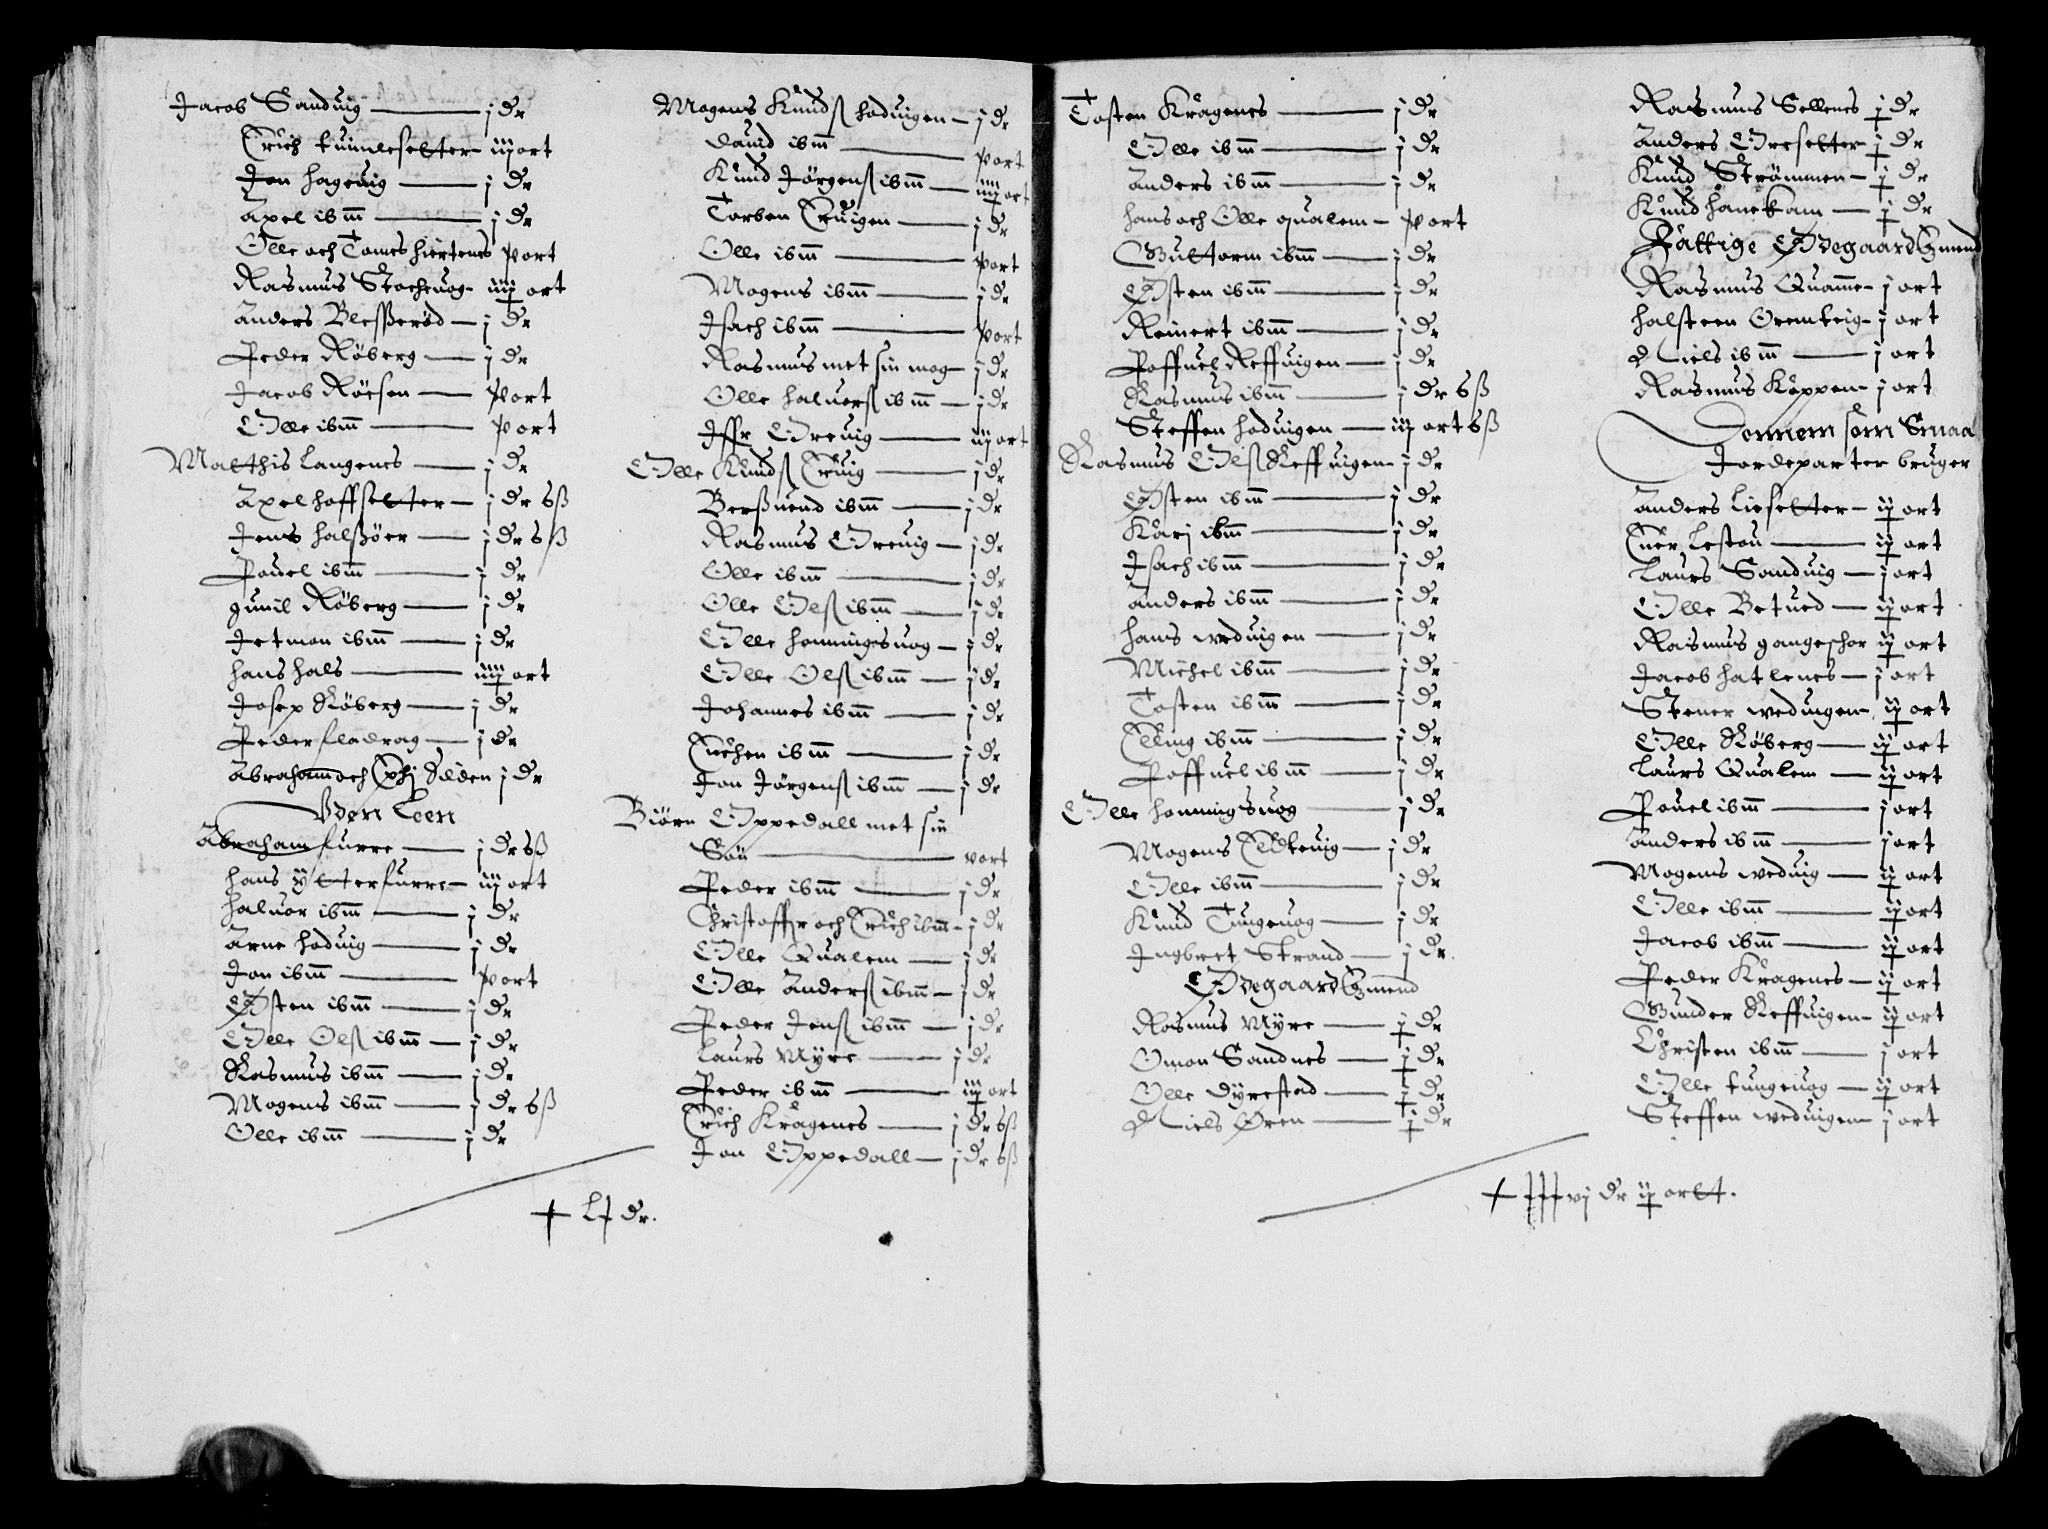 Jacob Sanduig — j dr
Erich tuimleseltter iijort
Jon hageuig — j dr
Axel ibm — j dr
Olle och Tomes hiertenes vort
Rasmus Stocheuog iiij ort
Anders Blessßerød — j dr
Peder Røberg — j dr
Jacob Røesen — vort
Olle ibm — vort
Matthis langenes — j dr
Axel hoffseltter — j dr sß
Jens halsßøer — j dr sß
Pouel ibm — j dr
gunil Røberg — j dr
Jetmon ibm — j dr
hans hals — iiij ort
Josep Røberg — j dr
Peder fladrag — j dr
Abraham och Ephj Sæden j dr
Vdøn Leen
Abraham furre — j dr sß
hans ÿtterfurre — iij ort
haluor ibm — j dr
Arne hoduig — j dr
Jon ibm — vort
Østen ibm — j dr
Olle Olß ibm — j dr
Rasmus ibm — j dr
Mogens ibm — j dr sß
Olle ibm — j dr
Mogens Knudß hoduigen — j dr
dauid ibm — vort
Knud Jørgenß ibm — iiij ort
Torben Eruigen — j dr
Olle ibm — vort
Mogens ibm — j dr
Jsach ibm — vort
Rasmus met sin mog — j dr
Olle haluorß ibm — j dr
Jffr Oreuig — iij ort
Olle Knudß Eruig — j dr
Berßuend ibm — j dr
Rasmus Oreuig — j dr
Olle ibm — j dr
Olle Olß ibm — j dr
Olle honningsuog — j dr
Olle Olß ibm — j dr
Johannes ibm — j dr
ibm — j dr
Jon Jørgenß ibm — j dr
Biørn Oppedall met sin
Søn — vort
Peder ibm — j dr
Christoffr och Erich ibm — j dr
Olle Qualem — j dr
Olle Anderß ibm — j dr
Peder Jenß ibm — j dr
Laurs Myre — j dr
Peder ibm — iij ort
Erich Kragenes — j dr sß
Jon Oppedall — j dr sß
Lj dr.
Tosten Kragenes — j dr
Olle ibm — j dr
Anders ibm — j dr
hans och Olle qualem — vort
Guttorm ibm — j dr
Østen ibm — j dr
Reinert ibm — j dr
Poffuel Reffuigen — j dr
Rasmus ibm — j dr sß
Steffen hoduigen — iij ort sß
Rasmus Olß Reffuigen j dr
Østen ibm — j dr
Karj ibm — j dr
Jsach ibm — j dr
Anders ibm — j dr
hans weduigen — j dr
Michel ibm — j dr
Tosten ibm — j dr
Elling ibm — j dr
Poffuel ibm — j dr
Olle honningsuog — j dr
Mogens Eldteuig — j dr
Olle ibm — j dr
Knud Tungeuog — j dr
Ingbret Strand — j dr.
Ødegaardtzmend
Rasmus Myre — j dr
Omon Sandnes — j dr
Olle dyrestad — j dr
Niels Øren — j dr
Rasmus Sellenes j dr
Anders Oreseltter j dr
Knud Strømmen — j dr
Knud hanekam — j dr
Fattige Ødegaardtzmend
Rasmus Quamme j ort
halsteen Oremteig j ort
Niels ibm — j ort
Rasmus Koppen j ort
Dennem som Smaa
Jordeparter bruger
Anders lieseltter — ij ort
Euer Lestou — ij ort
Laurs Sanduig — j ort
Olle Betued — ij ort
Rasmus gangeschor ij ort
Jacob hatlenes — j ort
Stener weduigen ij ort
Olle Røberg — ij ort
Laurs Qualem — ij ort
Pouel ibm — j ort
Anders ibm — j ort
Mogens weduig — ij ort
Olle ibm — ij ort
Jacob ibm — ij ort
Peder Kragenes — ij ort
Gunder Reffuigen ij ort
Christen ibm — j ort
Olle tungeuog — ij ort
Steffen weduigen j ort
vj dr ij ortt.